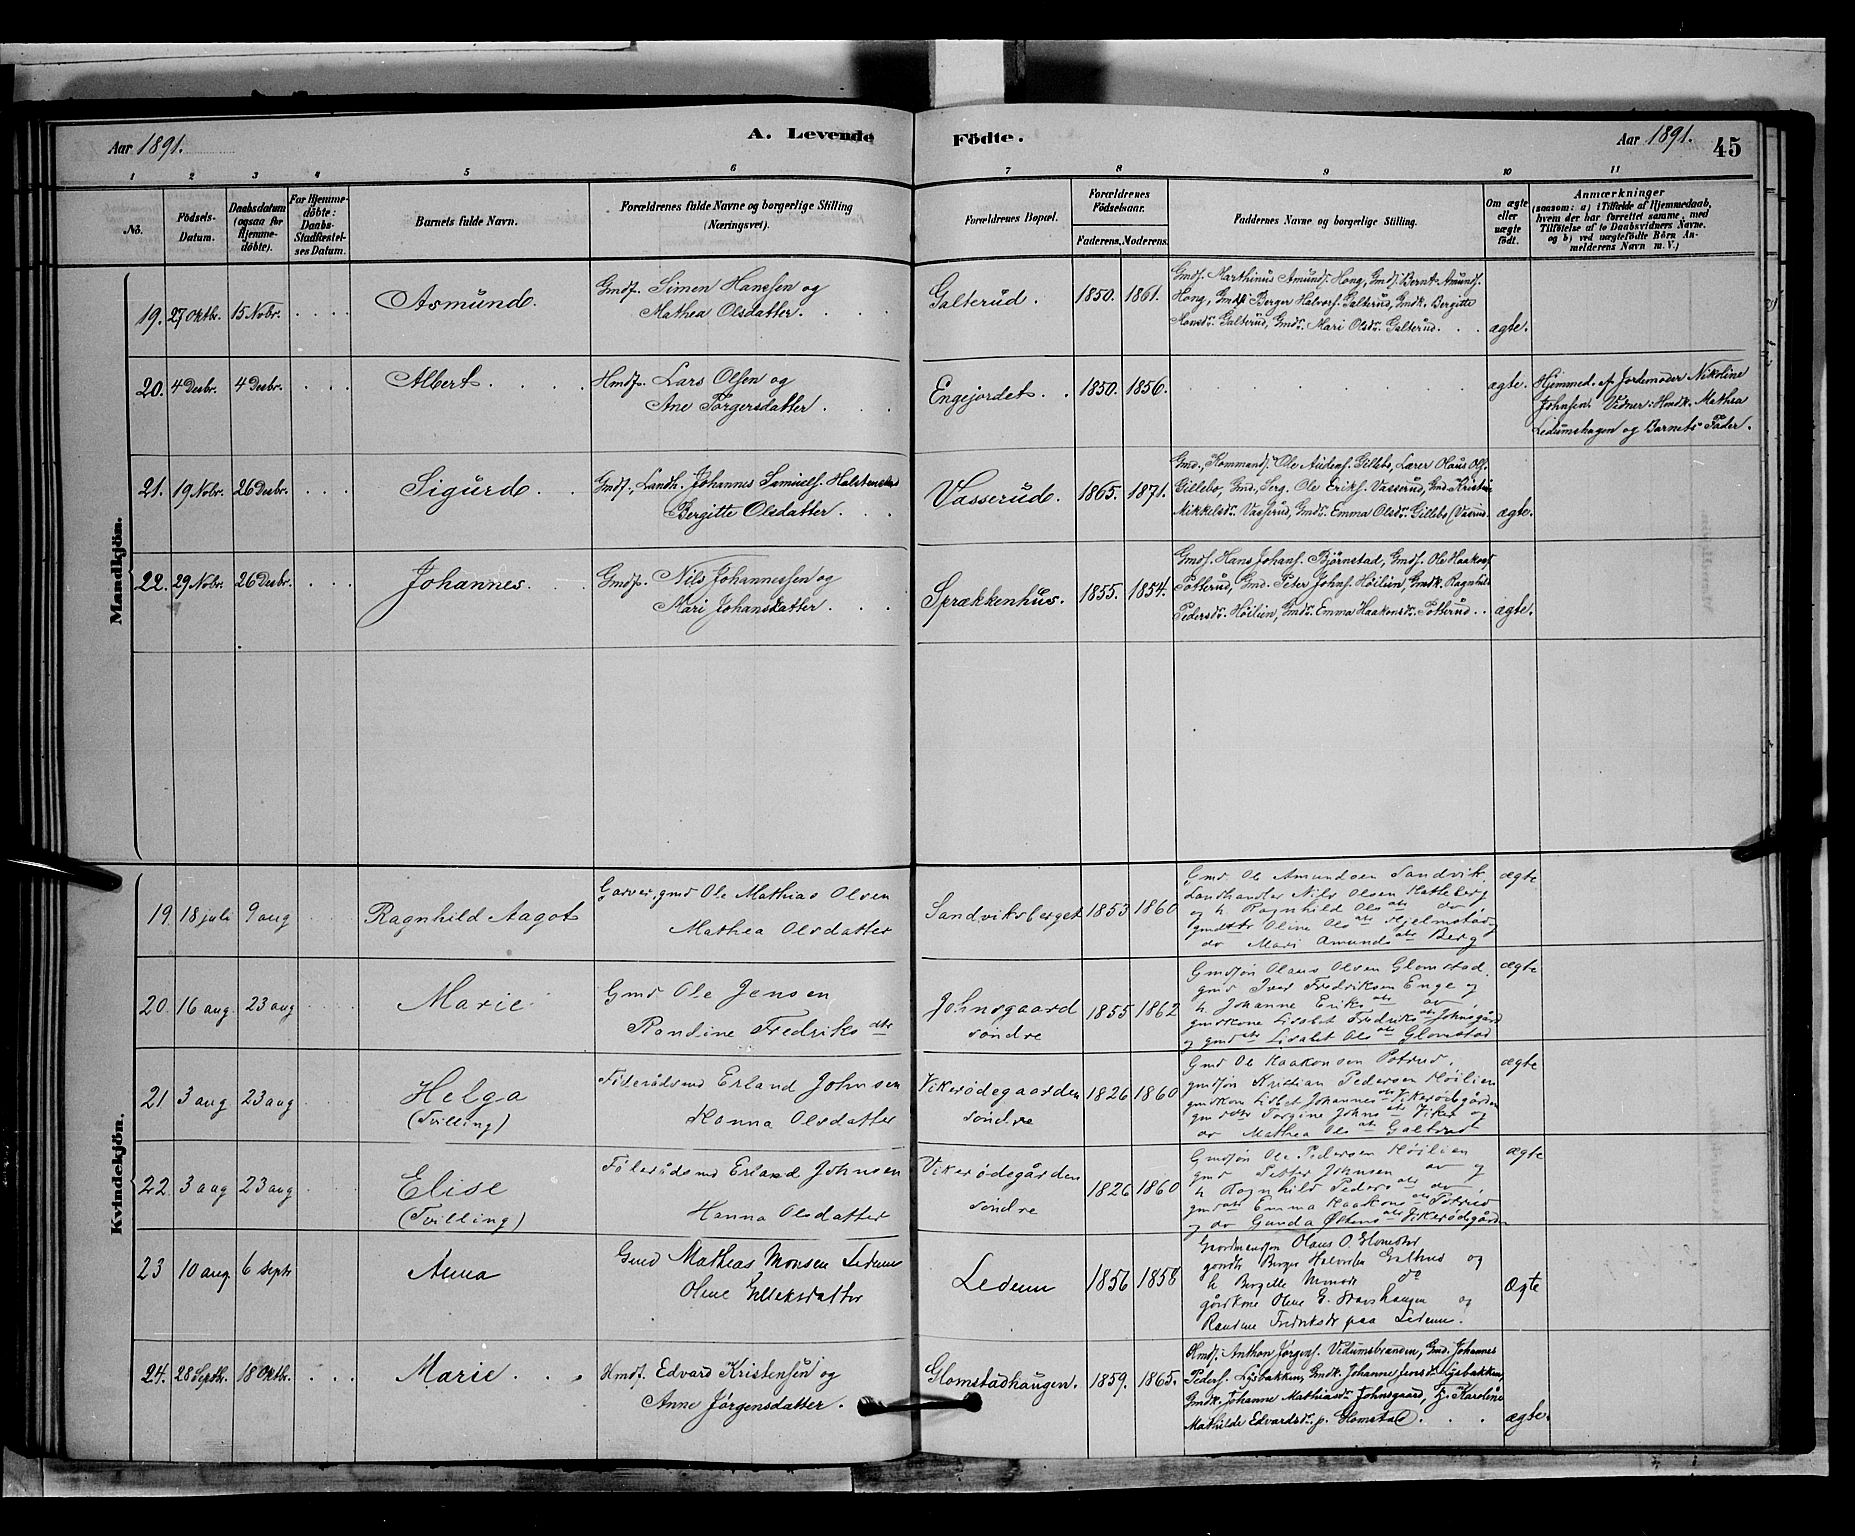 Aar 1891.
A. Levende
Födte.
Aar 1891.
45
1 2 3 4 5 6 7 8 9 10 11
No.
Födsels-
Datum.
Daabsdatum
(ogsaa for
Hjemme-
döbte).
For Hjemme-
döbte:
Daabs-
Stadfæstel-
ses Datum.
Barnets fulde Navn.
Forældrenes fulde Navne og borgerlige Stilling
(Næringsvei).
Forældrenes Bopæl.
Forældrenes
Födselsaar.
Faderens. Moderens.
Faddernes Navne og borgerlige Stilling.
Om ægte
eller
uægte
födt.
Anmærkninger
(saasom: a) i Tilfælde af Hjemmedaab,
hvem der har forrettet samme, med
Tilföielse af to Daabsvidners Navne.
og b) ved uægtefödte Börn An-
melderens Navn m. V.)
Mandkjön.
19. 27 Oktbr. 15 Novbr. Asmund.
Gmdf. Simen Hansen og
Mathea Olsdatter.
Galterud. 1850. 1861.
Gmdf. Marthinus Amundf. Hong, Gmdf. Bernt Amundf.
Hong, Gmdf. Berger Halvorf. Galterud, Gmdk. Bergitte
Monsdr. Galterud, Gmdr. Mari Olsdr. Galterud.
ægte.
20. 4 Desbr. 4 Desbr. Albert.
Hmdf. Lars Olsen og
Ane Torgersdatter.
Engejordet. 1850. 1856.
ægte.
Hjemmed. af Jordemoder Nikoline
Johnsen. Vidner: Hmdk. Mathea
Ledumshagen og Barnets Fader.
21. 19 Novbr. 26 Desbr. Sigurd.
Gmdf., Landh. Johannes Simuelf. Halstenstad
Bergitte Olsdatter.
Vasserud. 1865. 1871.
Gmd., Kommandf. Ole Audenf. Gillebo, Lærer Olaus Olf.
Gillebo, Gmd., Serg. Ole Erikf. Vasserud, Gmd. Kristine
Mikkelsdr. Vasserud, Gmdr. Emma Olsdr. Gillebo (Vasrud.
ægte.
22. 29 Novbr. 26 Desbr. Johannes.
Gmdf. Nils Johannessen og
Mari Johansdatter.
Sprækkenhus. 1855. 1854.
Gmdf. Hans Johanf. Bjørnstad, Gmdf. Ole Haakonf.
Potterud, Gmd. Peter Johnf. Høilien, Gmdk. Ragnhild
Pedersdr. Høilien, Gmdr. Emma Haakonsdr. Potterud.
ægte.
Kvindekjön.
19. 18 juli 9 aug Ragnhild Aagot
Garver, gmd Ole Mathias Olsen
Mathea Olsdatter
Sandviksberget 1853 1860
Gmd Ole Amundsen Sandvik
Landhandler Nils Olsen Hatteberg
og h Ragnhild Olsdtr do
gmdtr Oline Olsdtr Hjelmstad
do Mari Amundsdtr Berg
ægte
20 16 aug. 23 aug Marie
Gmd Ole Jensen
Randine Fredriksdtr
Johnsgaard
søndre
1855 1862
Gmdsøn Olaus Olsen Glomstad,
gmd Iver Fredriksen Enge og
h Johanne Eriksdtr do,
gmdkone Lisabet Fredriksdtr Johnsgård
og gmddtr Lisabet Olsdtr Glomstad
ægte
21 3 aug 23 aug Helga
(Tvilling)
Føderådsmd Erland Johnsen
Hanna Olsdatter
Vikerødegaarden
søndre
1826 1860
Gmd Ole Haakonsen Potrud,
gmdsøn Kristian Pedersen Høilien
gmdkone Lisbet Johannesdtr Vikerødegården
gmddtr Torgine Johnsdtr Viker og
do Mathea Olsdtr Galtrud
ægte
22. 3 aug 23 aug Elise
(Tvilling)
Føderådsmd Erland Johnsen
Hanna Olsdatter
Vikerødegården
søndre
1826 1860
Gmdsøn Ole Pedersen Høilien
gmd Petter Johnsen do og
h Ragnhild Pedersdtr do,
gmddtr Emma Haakonsdtr Potrud
og do Gunda Østensdtr Vikerødegården
ægte
23 10 aug. 6 septr Anna
Gmd Mathias Monsen Ledum
Olene Ellieksdatter
Ledum 1856 1858
Gaardmandsøn Olaus O. Glomstad
gmdk Berger Halvorsen Galtrud og
h Bergitte Monsdr do
gårdkone Olene E. Stavshaugen og
Randine Fredriksdr paa Ledum.
Ægte
24. 28 Septbr. 18 Oktbr. Marie.
Hmdf. Edvard Kristensen og
Anne Jørgensdatter.
Glomstadhaugen. 1859. 1865.
Hmdf. Anthon Jørgenf. Vidumsbraaden, Gmd. Johannes
Pederf. Lysbakken, Gmdk. Johanne Jensdr. Lysbakken,
Gmdk. Johanne Mathiasdr. Johnsgaard, Tj. Karoline
Mathilde Edvardsdr. p. Glomstad.
ægte.